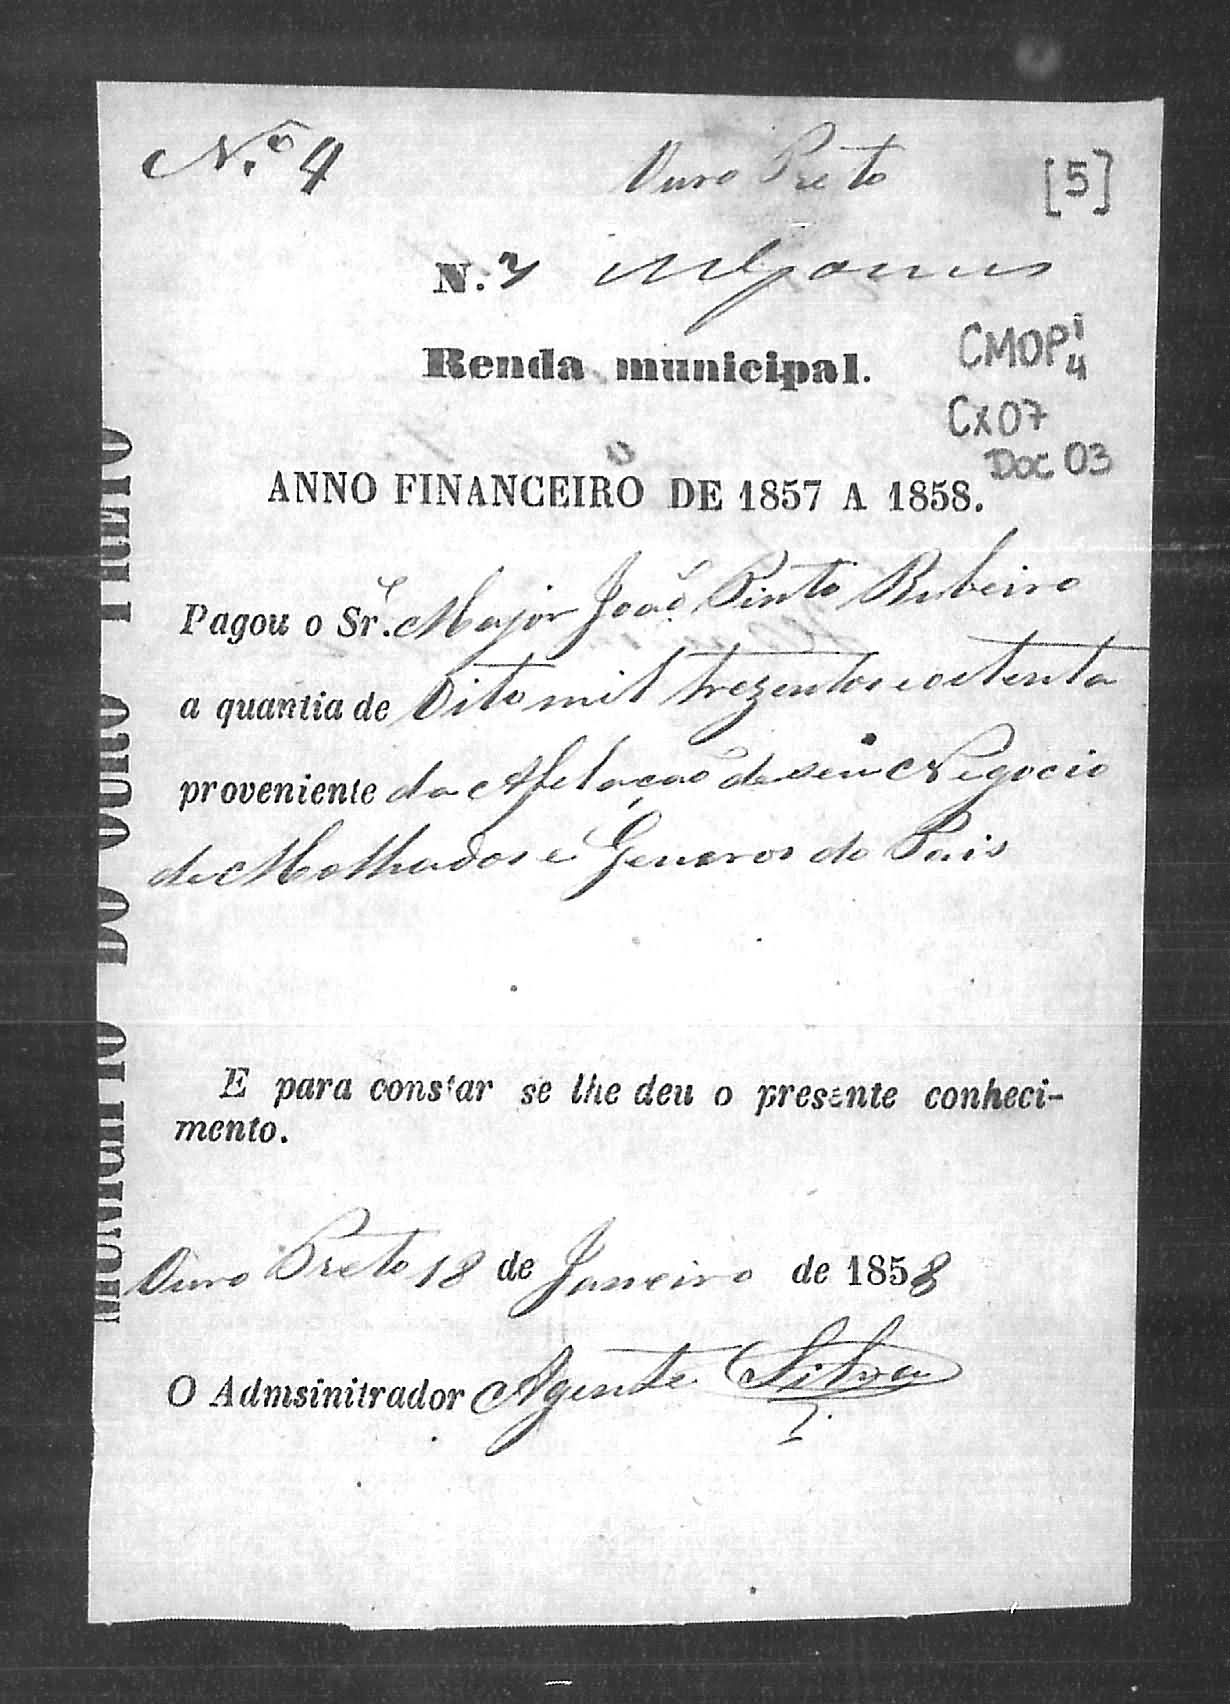 N.º 4
Ouro Preto
[5]
N. 3
Renda municipal.
CMOP 1/4
CX07
Doc 03
ANNO FINANCEIRO DE 1857 A 1858.
Pagou o Sr. Major João Pinto Ribeiro
a quantia de Oito mil trezentos e oitenta
proveniente da Afelação de seu Negocio
de Molhados e Generos do Pais
E para constar se lhe deu o presente conheci-
mento.
Ouro Preto 18 de Janeiro de 1858
O Admsinitrador Agente Silva
MUNICIPIO DO OURO PRETO